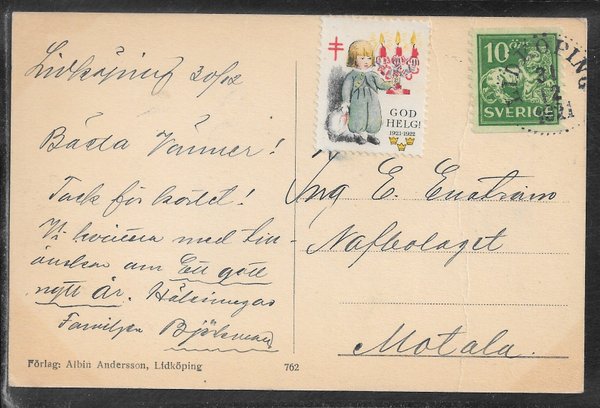 Lidköping 30/12
Bästa Vänner!
Tack för kortet!
Vi kvittera med till-
önskan om Ett gott
nytt år. Hälsningar
Familjen
GOD
HELG!
1921-1922
10 öre
SVERIGE
LIDKÖPING
Ing E. Enström
Nafbolaget
Motala.
Förlag: Albin Andersson, Lidköping
762